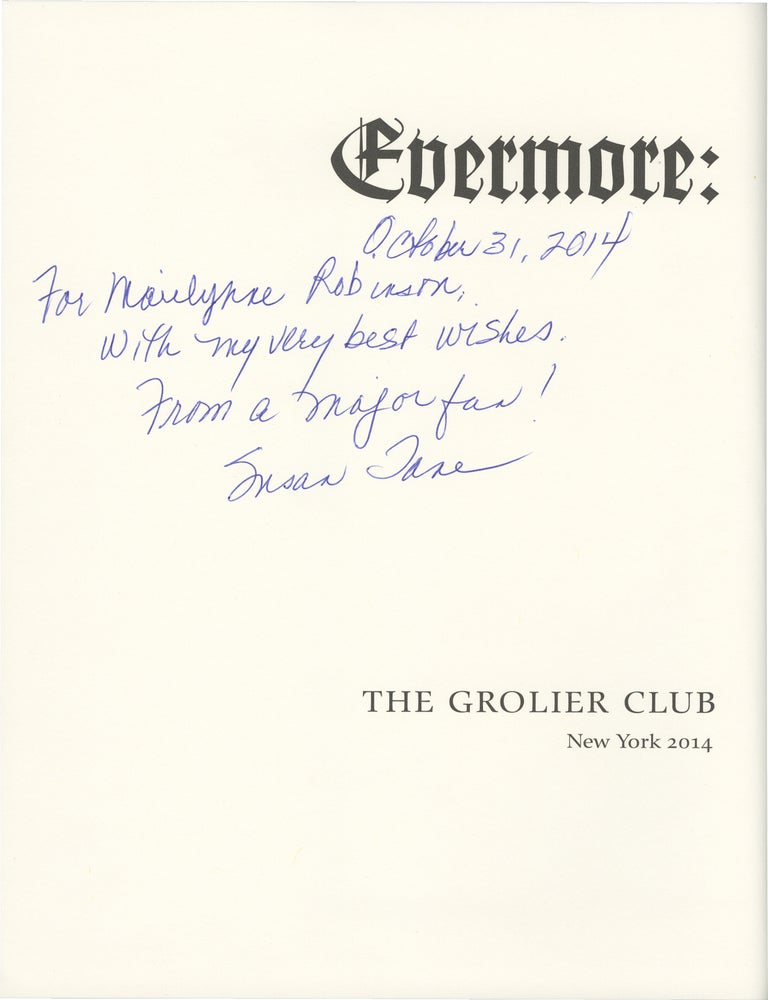 Evermore:
October 31, 2014
For Marilynne Robinson,
With my very best wishes.
From a major fan!
Susan Tane
THE GROLIER CLUB
New York 2014